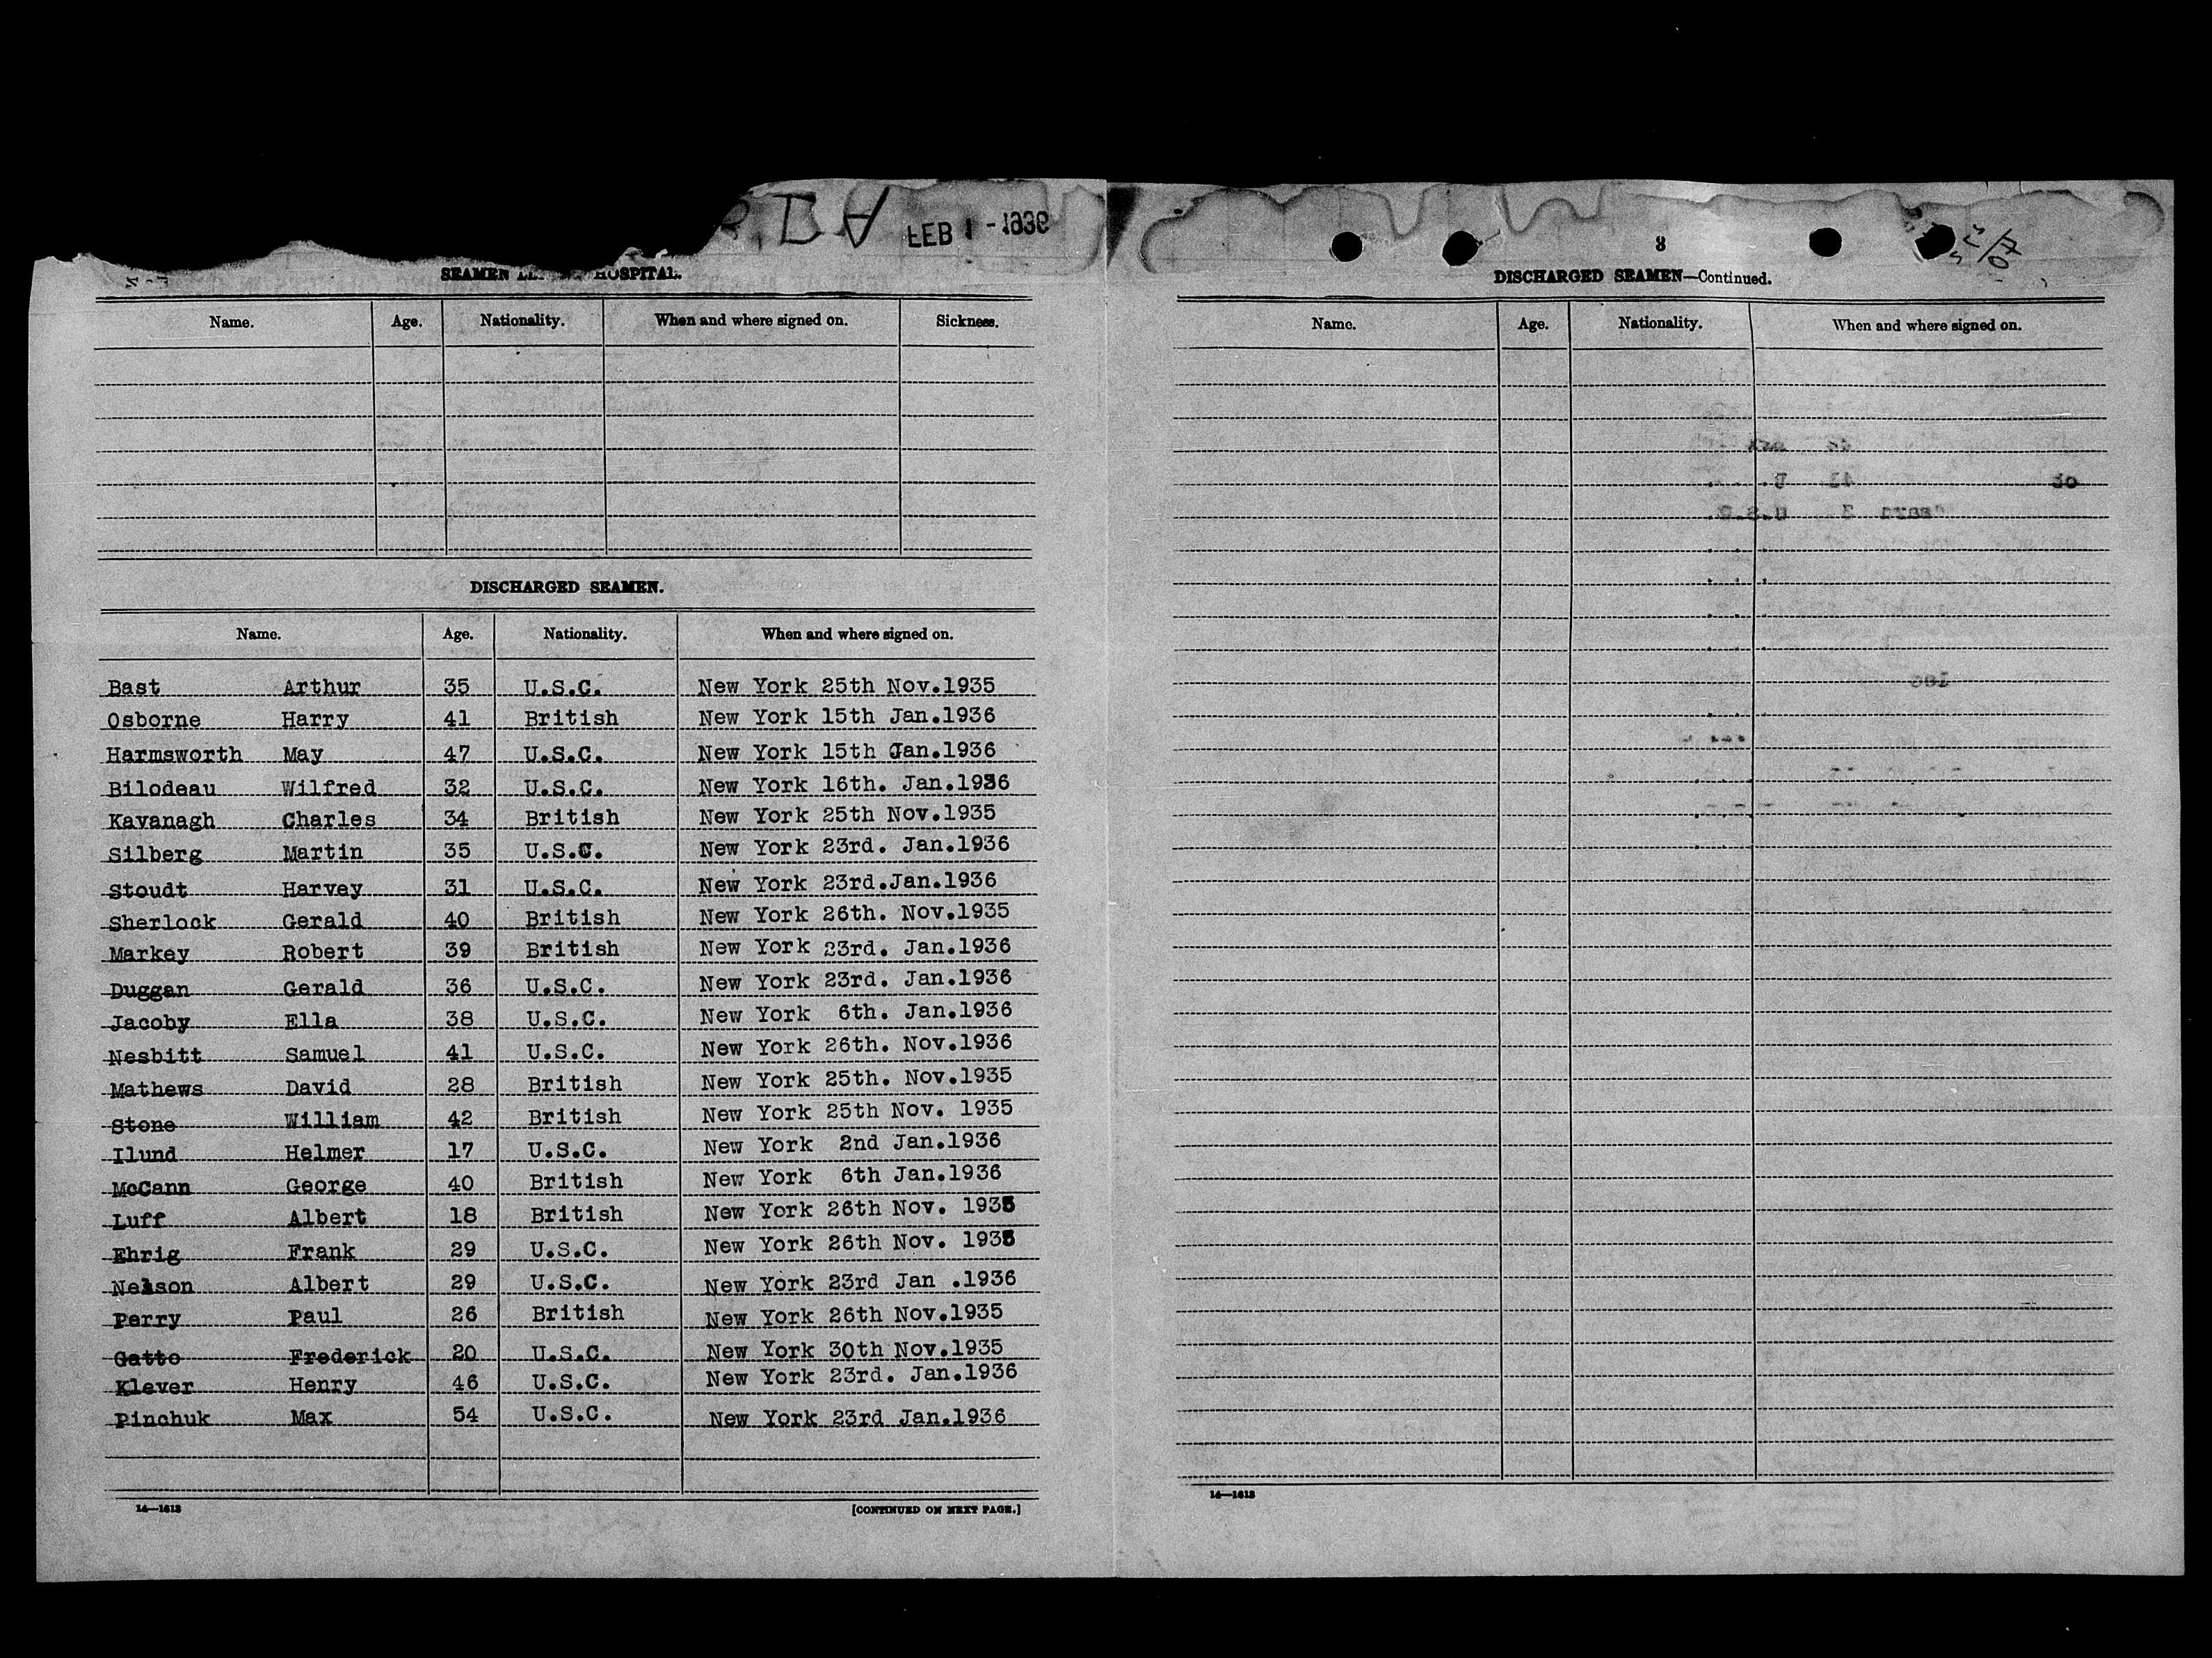 FEB 1 - 1936
SEAMEN HOSPITAL.
Name. Age. Nationality. When and where signed on. Sickness.
DISCHARGED SEAMEN.
Name. Age. Nationality. When and where signed on.
Bast Arthur 35 U.S.C. New York 25th Nov.1935
Osborne Harry 41 British New York 15th Jan.1936
Harmsworth May 47 U.S.C. New York 15th Jan.1936
Bilodeau Wilfred 32 U.S.C. New York 16th. Jan.1936
Kavanagh Charles 34 British New York 25th Nov.1935
Silberg Martin 35 U.S.C. New York 23rd. Jan.1936
Stoudt Harvey 31 U.S.C. New York 23rd.Jan.1936
Sherlock Gerald 40 British New York 26th. Nov.1935
Markey Robert 39 British New York 23rd. Jan.1936
Duggan Gerald 36 U.S.C. New York 23rd. Jan.1936
Jacoby Ella 38 U.S.C. New York 6th. Jan.1936
Nesbitt Samuel 41 U.S.C. New York 26th. Nov.1936
Mathews David 28 British New York 25th. Nov.1935
Stone William 42 British New York 25th Nov. 1935
Ilund Helmer 17 U.S.C. New York 2nd Jan.1936
McCann George 40 British New York 6th Jan.1936
Luff Albert 18 British New York 26th Nov. 1935
Ehrig Frank 29 U.S.C. New York 26th Nov. 1935
Nelson Albert 29 U.S.C. New York 23rd Jan .1936
Perry Paul 26 British New York 26th Nov.1935
Gatto Frederick 20 U.S.C. New York 30th Nov.1935
Klever Henry 46 U.S.C. New York 23rd. Jan.1936
Pinchuk Max 54 U.S.C. New York 23rd Jan.1936
14—1613
[CONTINUED ON NEXT PAGE.]
3
DISCHARGED SEAMEN—Continued.
Name. Age. Nationality. When and where signed on.
14—1613